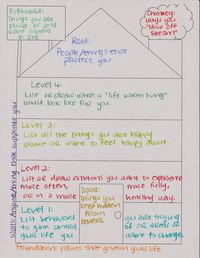 Billboard:
Things you are
proud of and
want others
to see
Chimney:
Ways you
"blow off
steam"
Roof:
People/things that
protect you
Level 4:
List or draw what a "life worth living"
would look like for you
Level 3:
List all the things you are happy
about or want to feel happy about.
Level 2:
List or draw emotions you want to experience
more often, more fully,
or in a more healthy way.
Door:
Things you
keep hidden
from
others
Level 1:
List behaviors you are trying
to gain control of or areas of
your life want to change.
Walls: Anyone/thing that supports you
Foundation: Values that govern your life